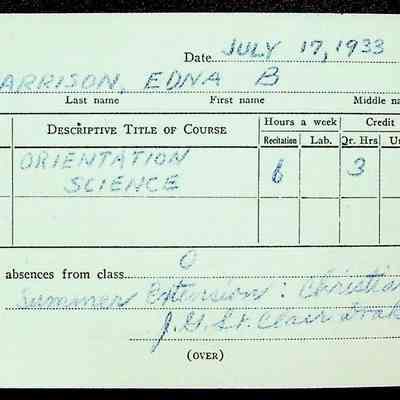 Date JULY 17, 1933
ARRISON, EDNA B
Last name First name Middle na
DESCRIPTIVE TITLE OF COURSE Hours a week Credit
Recitation Lab. Qr. Hrs Un
ORIENTATION 6 3
SCIENCE
absences from class 0
Summer Extension: Christian
J.G. St. Clair Drak
(OVER)